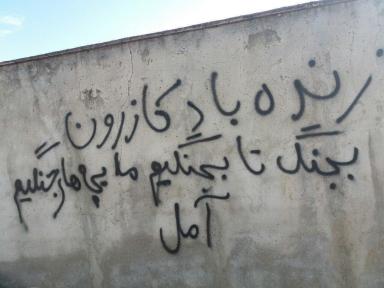 زنده باد کازرون
بجنگ تا بجنگیم ما بچه های جنگیم
آمل